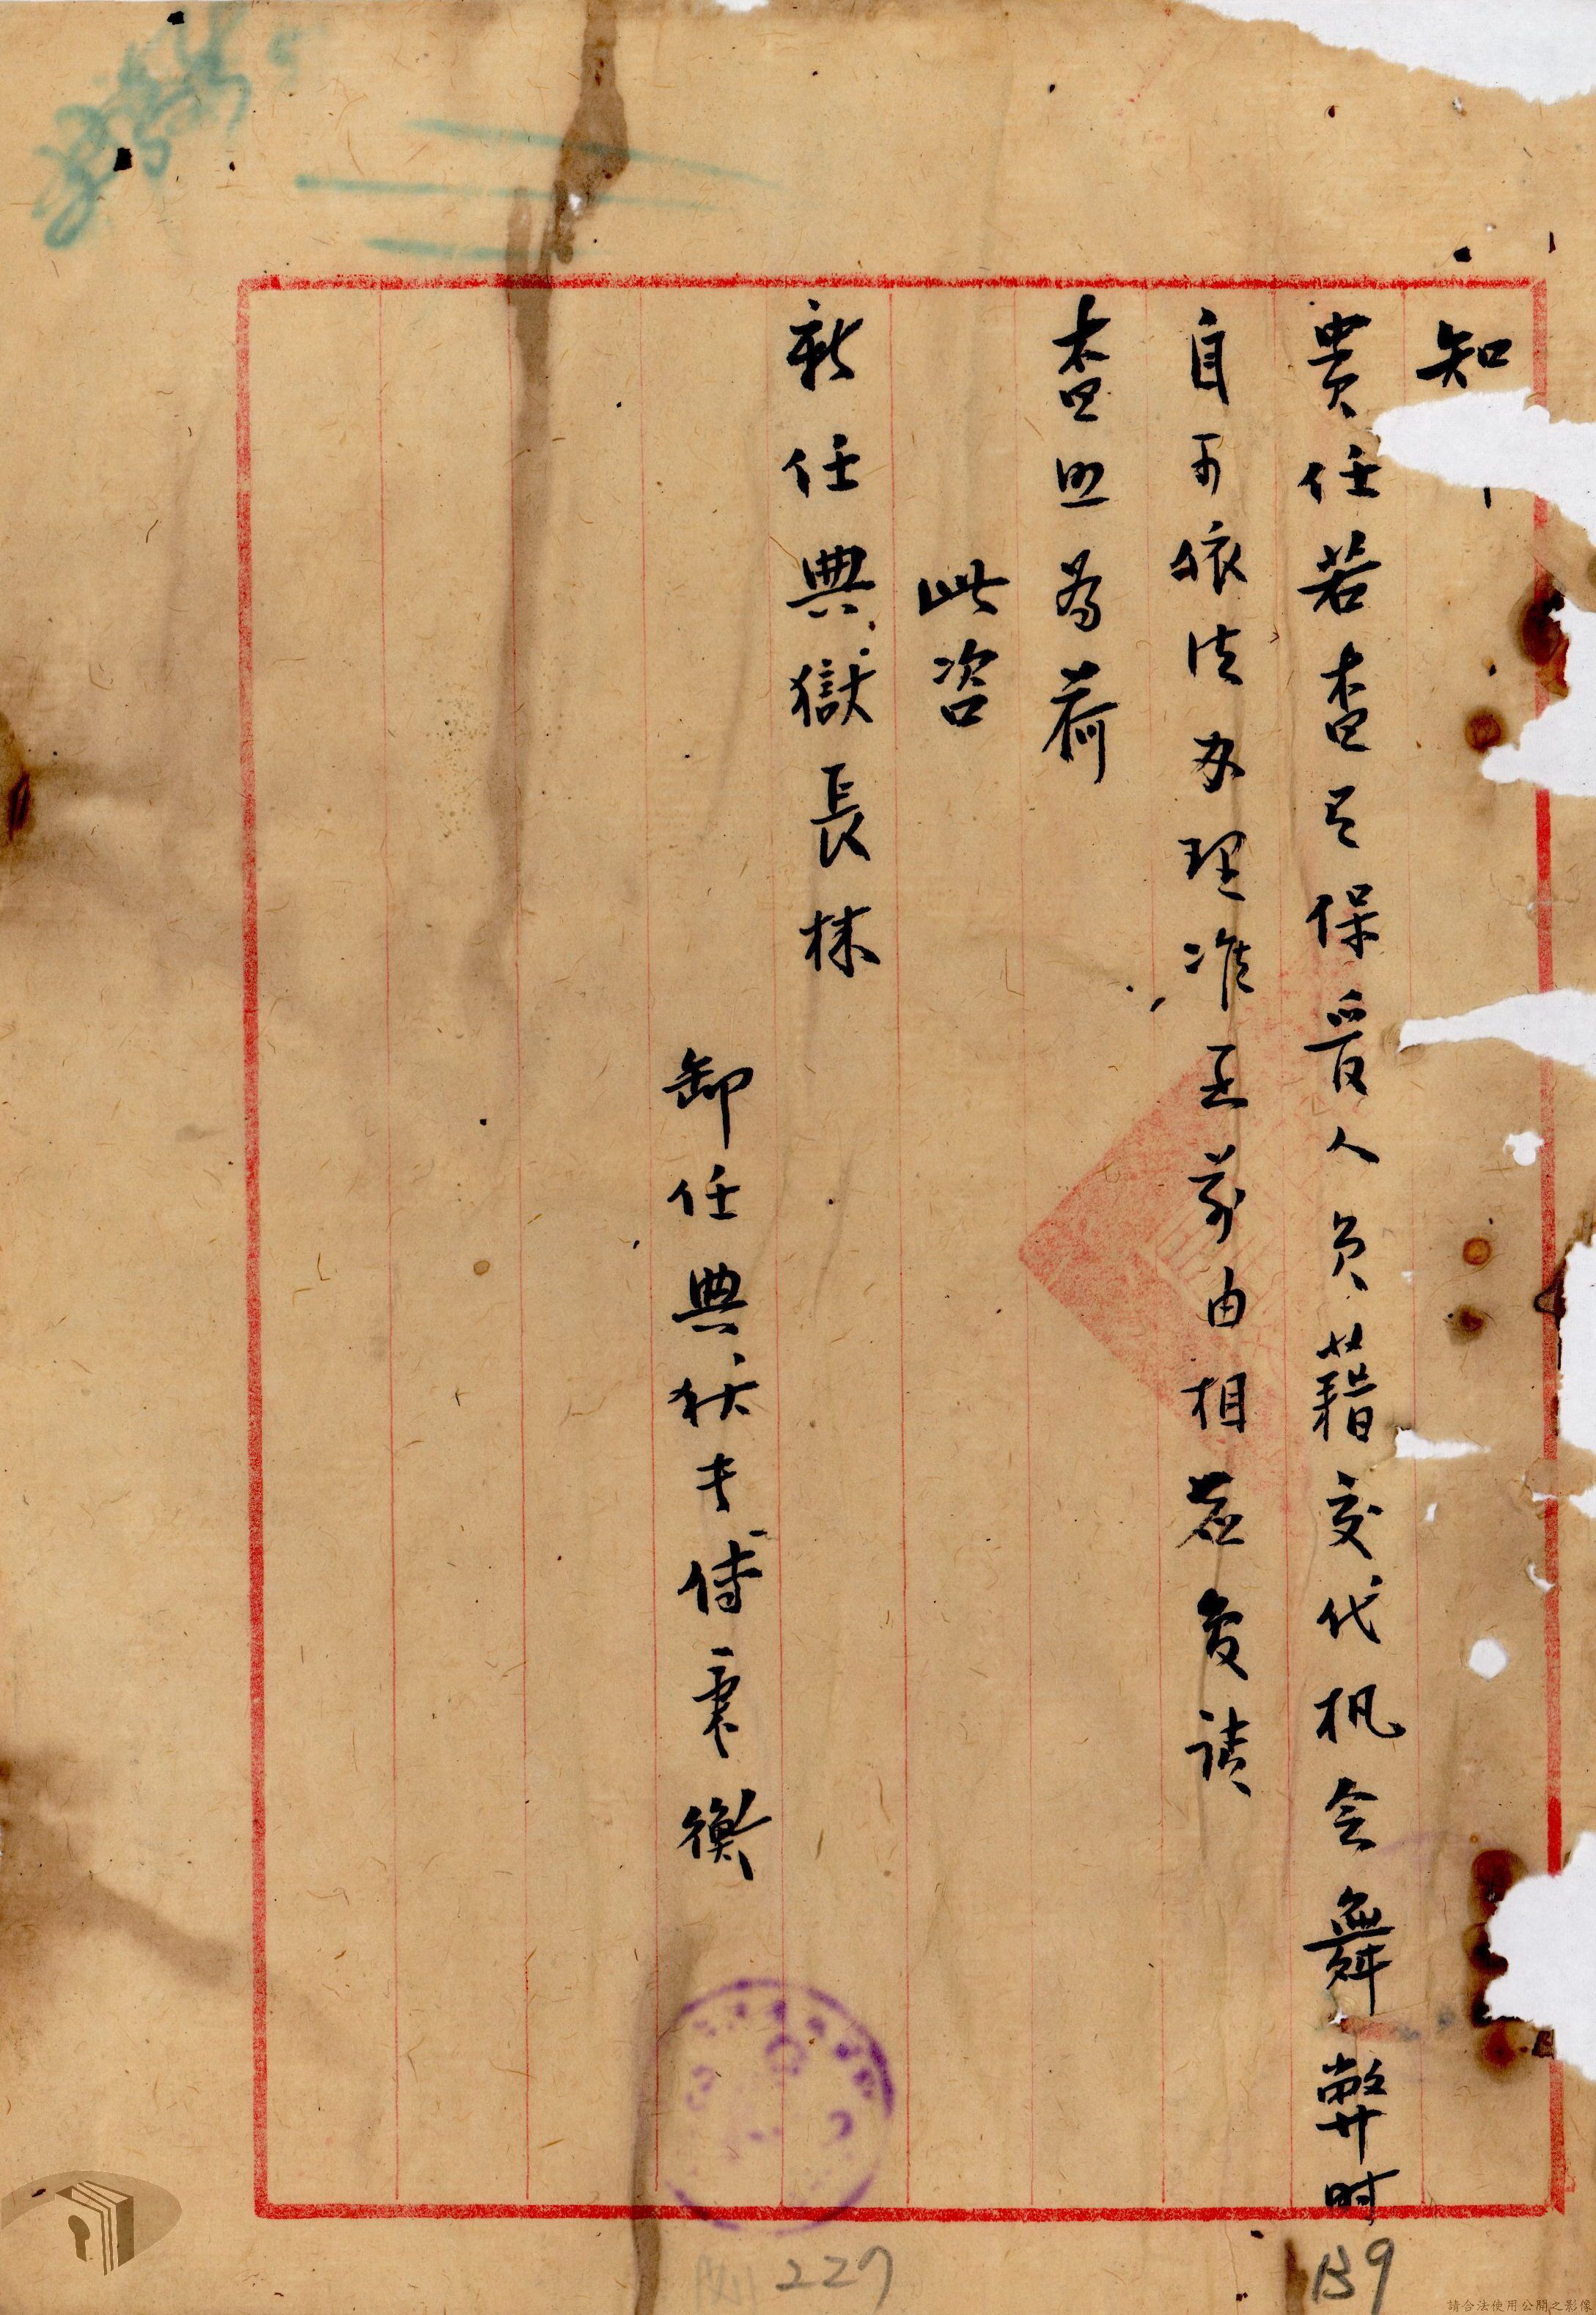 知
貴任若查已保受人员藉交代机会舞弊时
自可依法办理准玉前由相應复請
查照為荷
此咨
新任典獄長林
卸任典狱长傅秉衡
139
227
請合法使用公開之影像